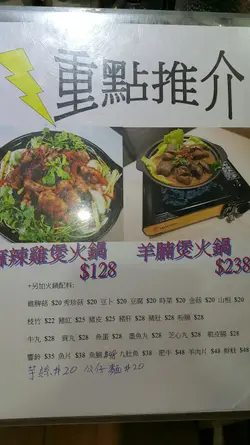 重點推介
麻辣雞煲火鍋
$128
羊腩煲火鍋
$238
*另加火鍋配料:
雞脾菇 $20 秀珍菇 $20 豆卜 $20 豆腐 $20 時菜 $20 金菇 $20 山根 $20
枝竹 $22 豬紅 $25 豬皮 $25 豬肝 $28 豬肚 $28 粉腸 $28
牛丸 $28 貢丸 $28 魚蛋 $28 墨魚丸 $28 芝心丸 $28 蝦皮腸 $28
響鈴 $35 魚片 $38 魚腩 九肚魚 $38 肥牛 $48 羊肉片 $48 鮮魷 $48
芋絲 $20 公仔麵 $20